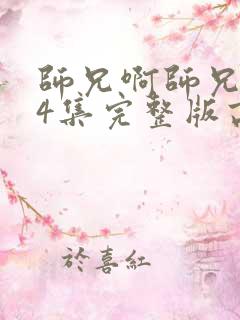 師兄啊師兄
4集完整版
於喜紅